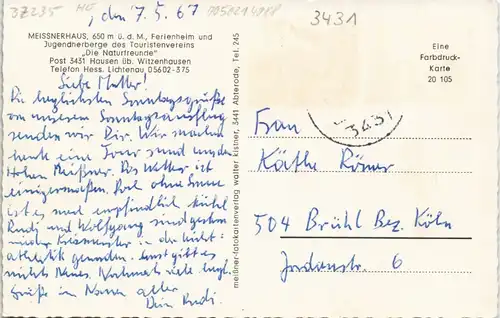 37235
3431
, den 7.5.67
MEISSNERHAUS, 650 m ü. d. M., Ferienheim und
Jugendherberge des Touristenvereins
„Die Naturfreunde"
Post 3431 Hausen üb. Witzenhausen
Telefon Hess. Lichtenau 05602-375
Liebe Mutter!
Die herzlichsten Sonntagsgrüße
von unserem Sonntagsausflug
senden wir Dir. Wir machen
heute eine Tour rund um den
Hohen Meißner. Das Wetter ist
einigermaßen. Doch ohne Sonne
ist es noch empfindlich kühl.
Rudi und Wolfgang sind gestern
wieder Kreismeister in der Leicht-
athletik geworden. Sonst gibt es
nichts Neues. Nochmals viele herzl.
Grüße im Namen aller
Dein Rudi.
meißner-fotokartenverlag walter kistner, 3441 Abterode, Tel. 245
Eine
Farbdruck-
Karte
20 105
3431
Frau
Käthe Römer
504 Brühl Bez. Köln
Jordanstr. 6